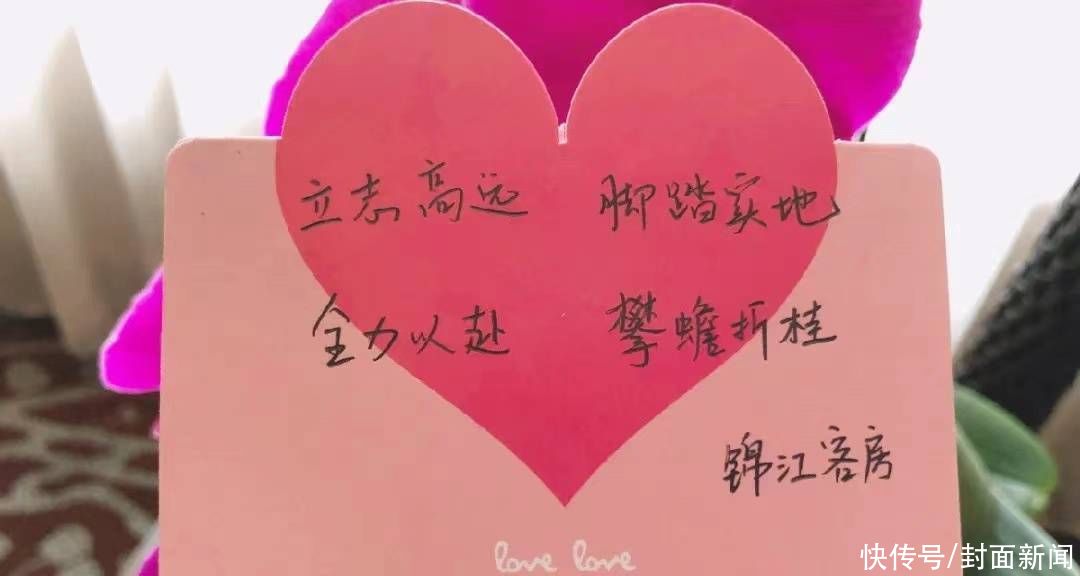 立志高远 脚踏实地
全力以赴 攀蟾折桂
锦江客房
love love
快传号/封面新闻